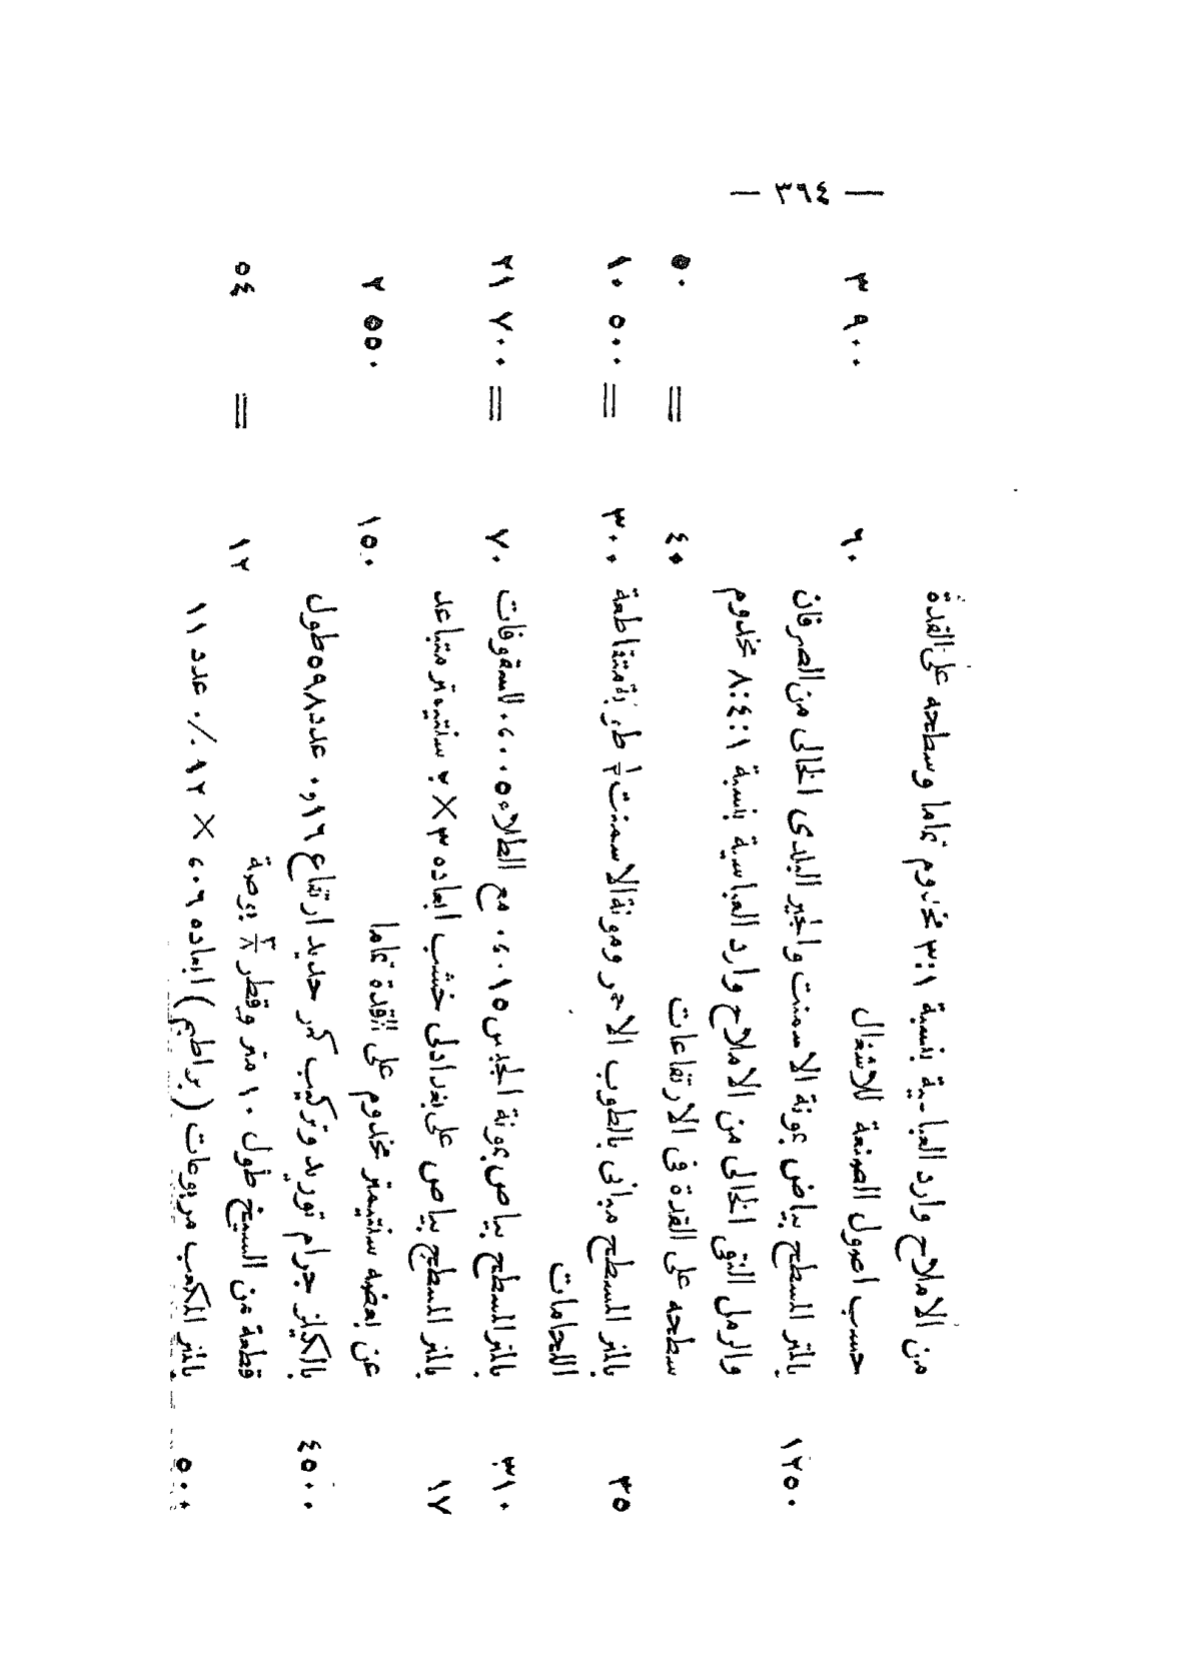 — ٣٩٤ —
من الاملاح وارد العباسية بنسبة ٣:١ مخدوم تماما وسطحه على القدة
حسب اصول الصنعة للاشغال ٦٠ ٣ ٩٠٠
١٢٥٠ بالمتر المسطح بياض بمونة الاسمنت والجير البلدى الخالى من الصرفان
والرمل النقى الخالى من الاملاح وارد العباسية بنسبة ٨:٤:١ مخدوم
سطحه على القدة فى الارتفاعات ٤٠ = ٥٠
٣٥ بالمتر المسطح مبانى بالطوب الاحمر ومونة الاسمنت ½ طوبة متقاطعة
اللحامات ٣٠٠ = ١٠ ٥٠٠
٣١٠ بالمتر المسطح بياض بمونة الجبس ٠٫٠١٥ مع الطلاء ٠٫٠٠٥ للسقوفات ٧٠ = ٢١ ٧٠٠
١٧ بالمتر المسطح بياض على بغدادلى خشب ابعاده ٣ × ٢ سنتيمتر متباعد
عن بعضه سنتيمتر مخدوم على القدة تماما ١٥٠ ٢ ٥٥٠
٤٥٠٠ بالكيلو جرام توريد وتركيب كمر حديد ارتفاع ٠٫١٦ عدد ٥٩٨ طول
قطعة من السيخ طول ١٠ متر وقطر ٣/٨ بوصة ١٢ = ٥٤
٥٠٠ بالمتر المكعب مربوعات (براطيم) ابعاده ٠٫٠٦ × ١٢٪ عدد ١١